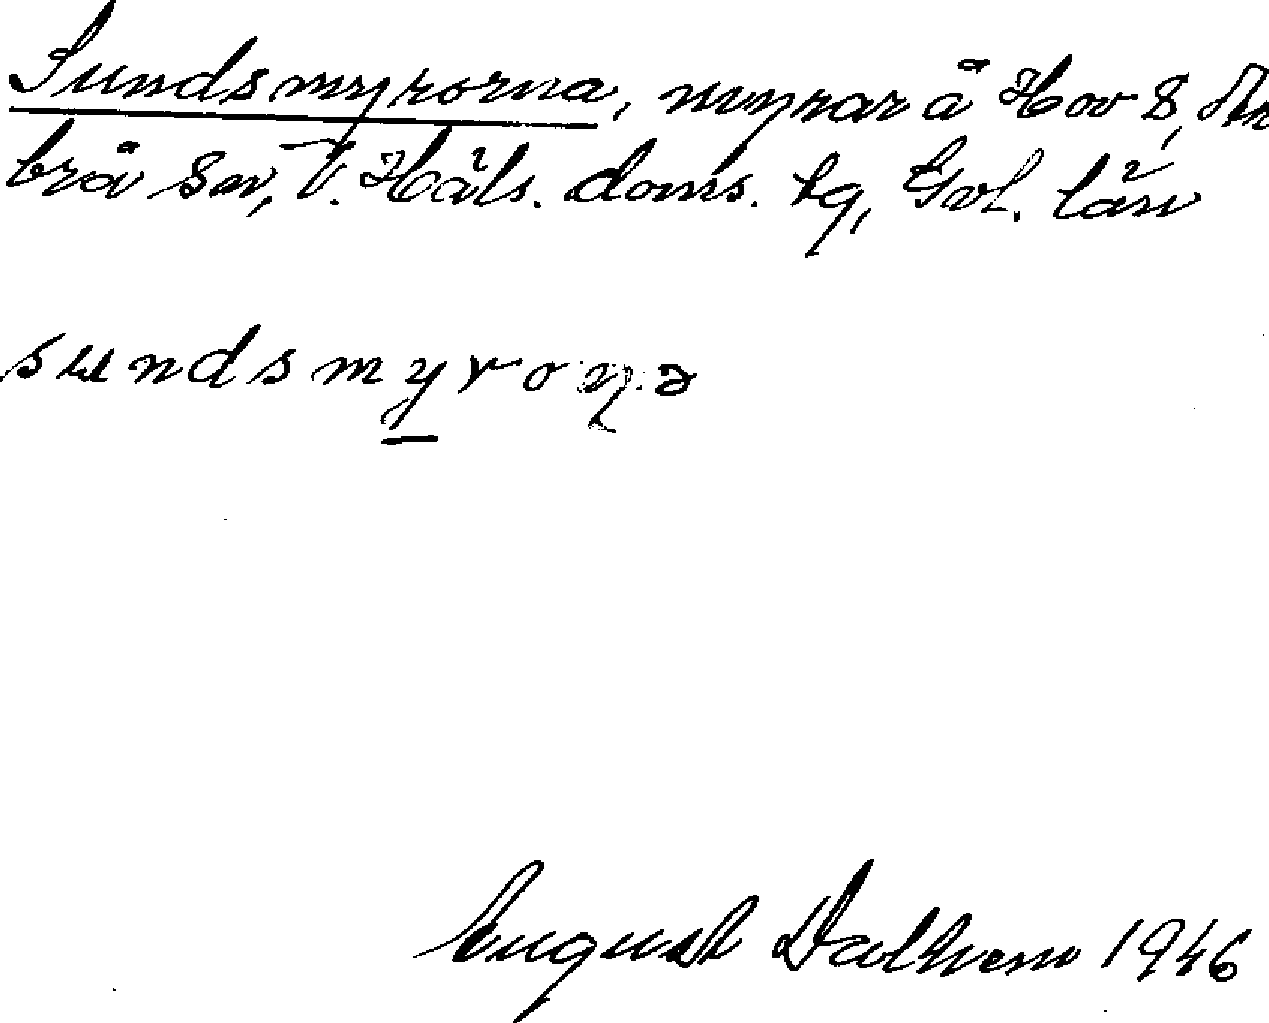 Sundsmyrorna, myrar å Hov 8, Ar
brå sn, V. Häls. doms. tg, Gvl. län
sundsmyroɳə
August Dalhem 1946